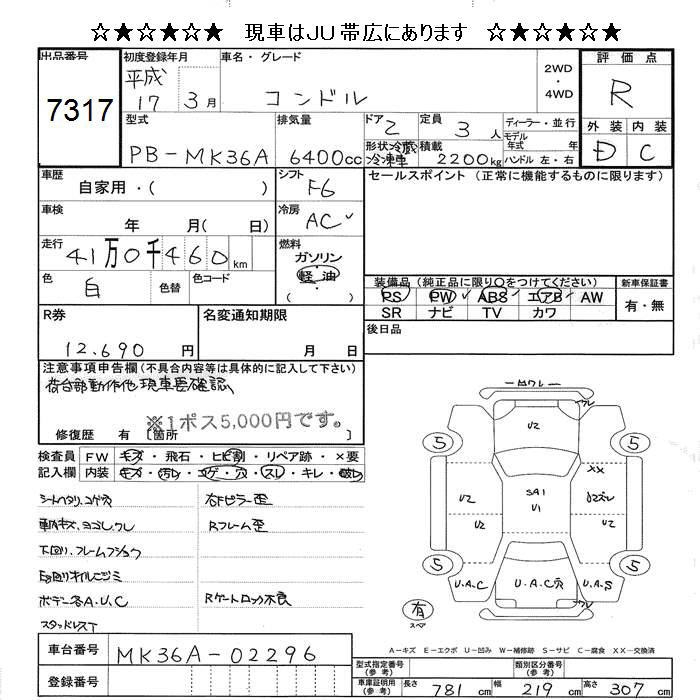 ☆★☆★☆★ 現車はJU帯広にあります ☆★☆★☆★
出品番号
7317
初度登録年月
平成
17 3月
車名・グレード
コンドル
2WD
・
4WD
評価点
R
外装 内装
D C
型式
PB-MK36A
排気量
6400cc
ドア
2
定員
3人
ディーラー・並行
モデル
年式 年
ハンドル 左・右
形状 冷蔵
冷凍車
積載
2200kg
車歴
自家用・( )
シフト
F6
セールスポイント (正常に機能するものに限ります)
車検
年 月( 日)
冷房
AC✓
走行
41万0千460km
燃料
ガソリン
軽油
( )
色
白
色替
色コード
装備品(純正品に限り○をつけてください)
PS PW ABS エアB AW
SR ナビ TV カワ
新車保証書
有・無
R券
12,690 円
名変通知期限
月 日
後日品
注意事項申告欄(不具合内容等は具体的に記入して下さい)
荷台部動作他現車要確認
※1ポス5,000円です。
修復歴 有 〔箇所 〕
検査員 FW キズ・飛石・ヒビ割・リペア跡・×要
記入欄 内装 キズ・汚レ・コゲ・穴・スレ・キレ・破レ
シートヘタリ、コゲ穴
車内キズ、ヨゴレ、ワレ
下回り、フレームフショク
E/g回りオイルニジミ
ボデー各A.U.C
スタッドレスT
右Fピラー歪
Rフレーム歪
Rゲートロック不良
ワレ
ワレ
U2
5
5
XX
U2
SA1
U1
U2
U2
U2
5
5
U.A.C
U.A.C穴
U.A.S
有
スペア
A-キズ E-エクボ U-凹み W-補修跡 S-サビ C-腐食 XX-交換済
車台番号
MK36A-02296
登録番号
型式指定番号
(参考)
類別区分番号
(参考)
車庫証明用
(参考)
長さ 781 cm 幅 219 cm 高さ 307 cm